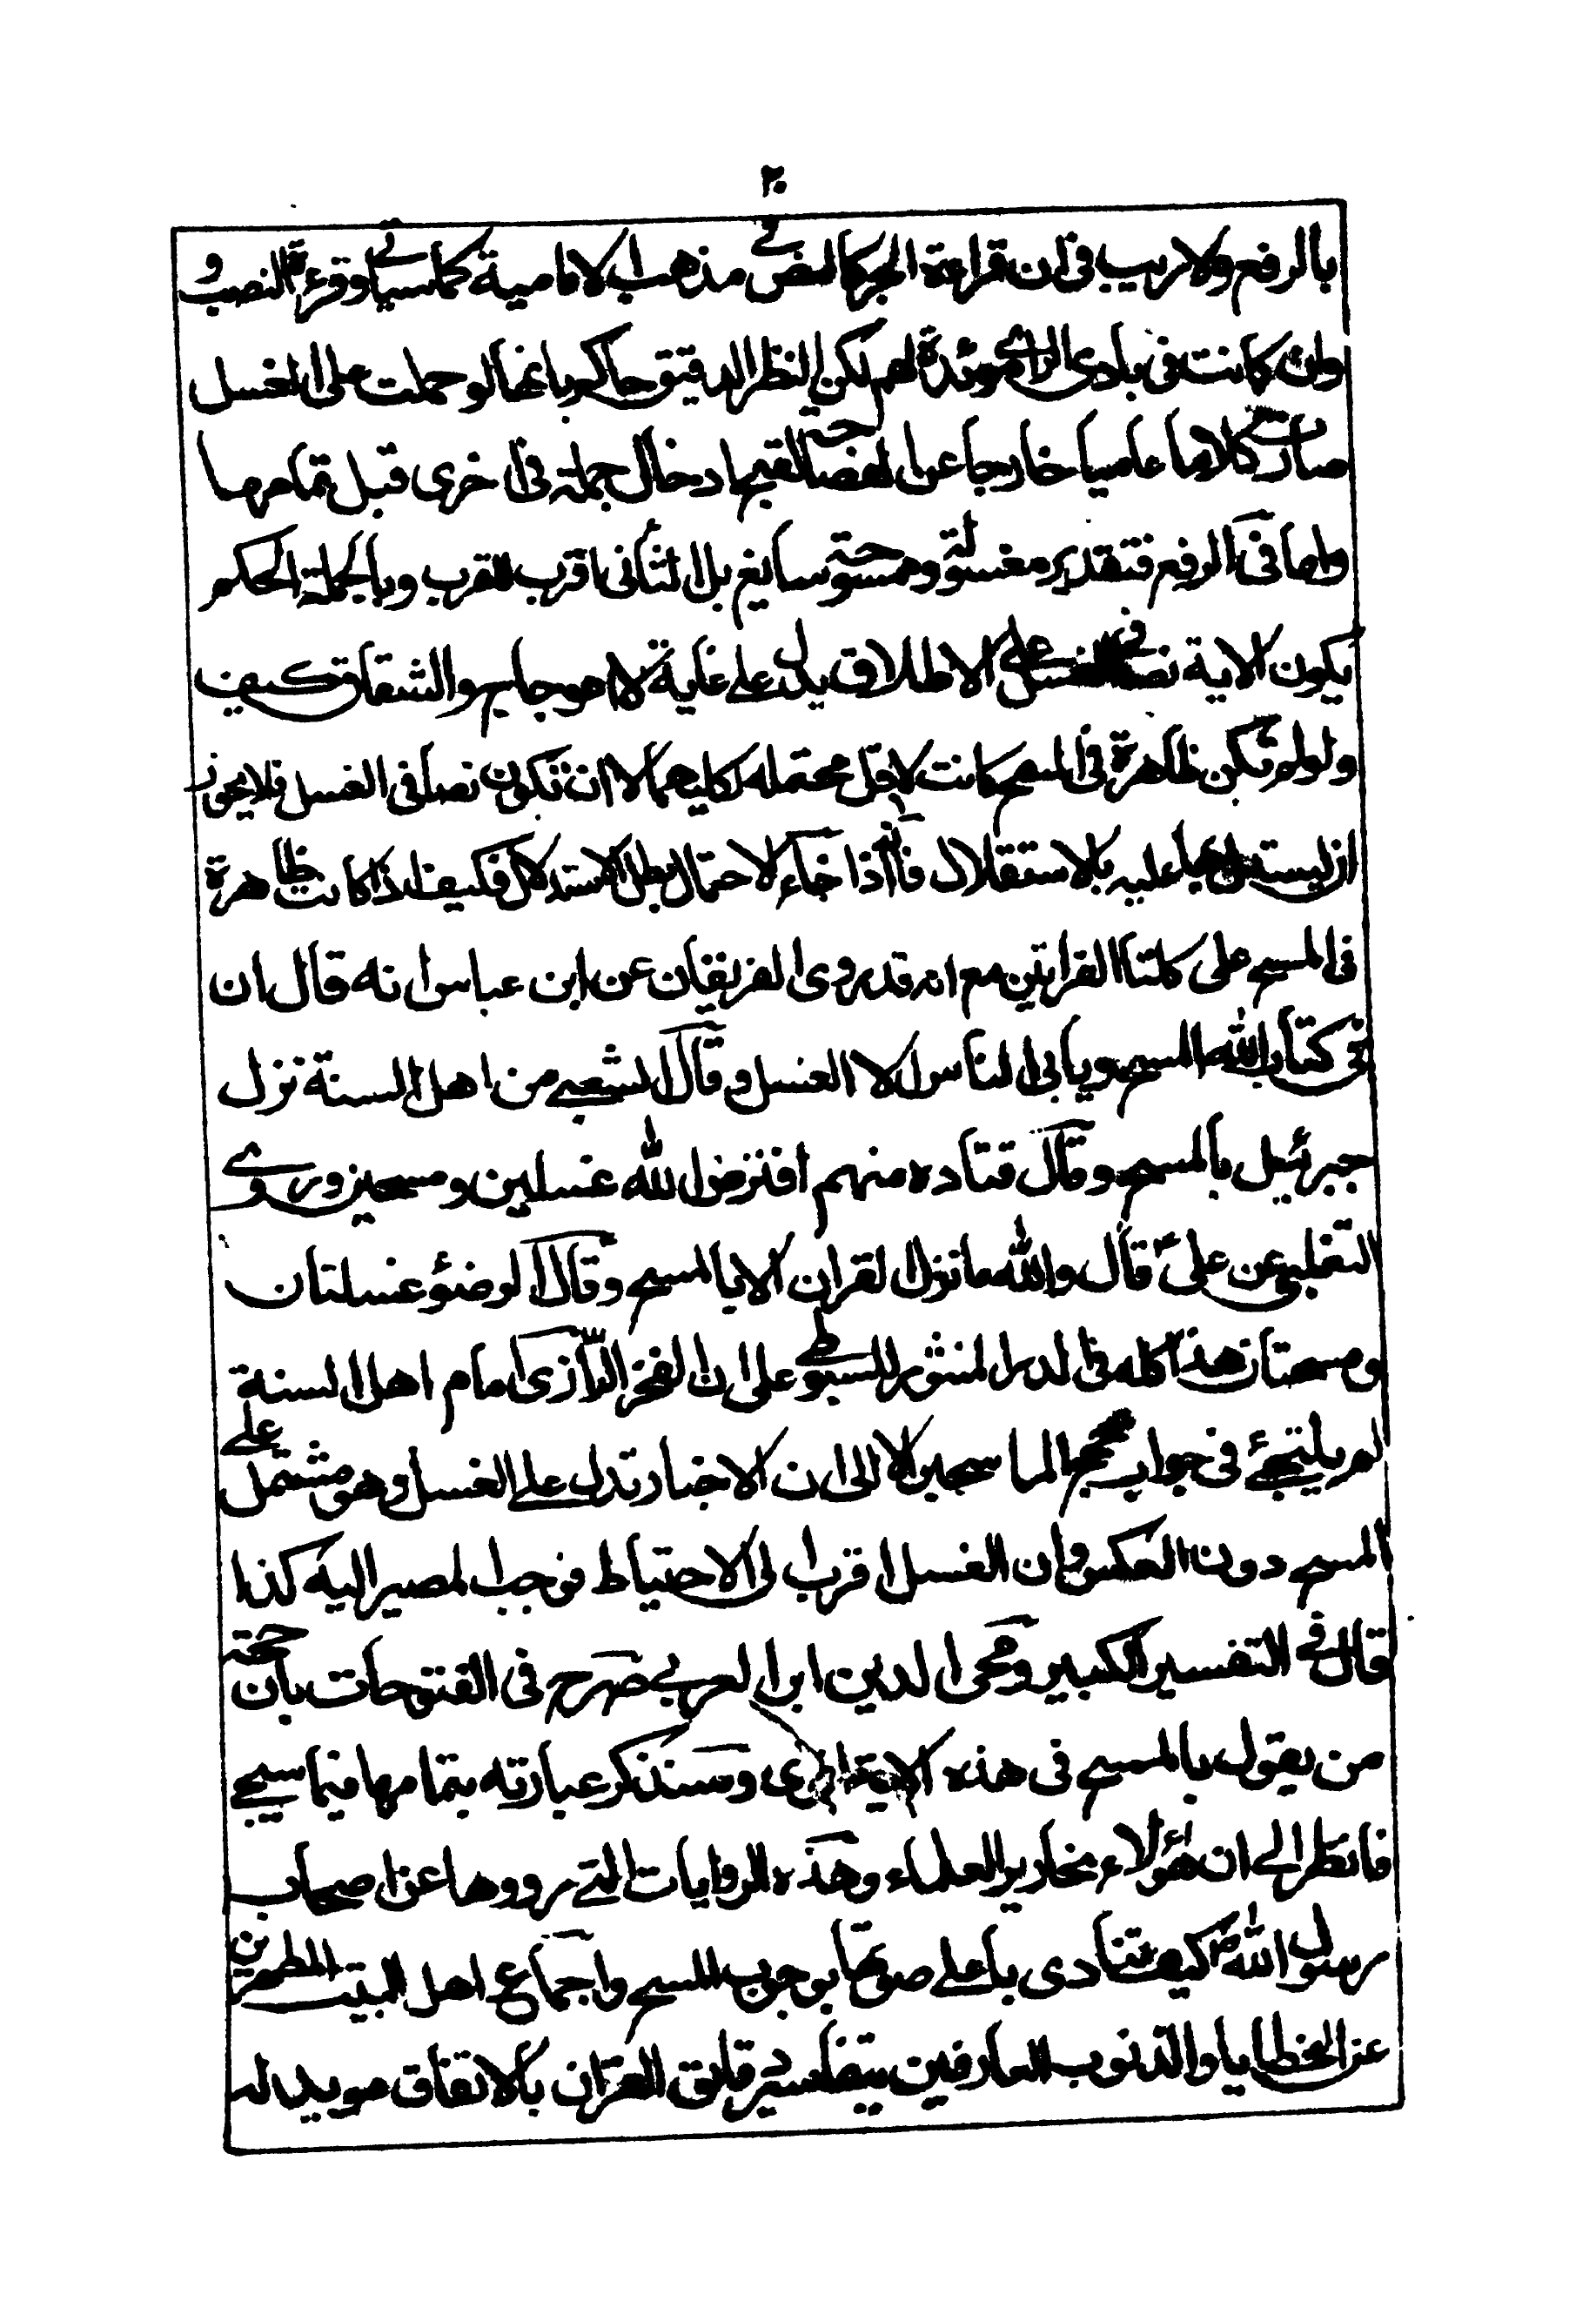 ٢٠
بالرفع ولاريب فى ان قراءة الجر كالنص فى مذهب الامامية كما سياتى وقرءة النصب و
وان كانت فى بادى الراى مؤيدة لهم لكن النظر الدقيق حاكم بانها لو حملت على الغسل
صارت كلاما عاميا خارجا عن الفصاحة لقبح ادخال جملة فى اخرى قبل تمامها
واما فى الرفع فتقدير مغسولة وممسوحة سايغ بل الثانى اقرب للقرب وبالجملة الحكم
يكون الاية نصا فى الغسل على الاطلاق يدل على غاية لاعوجاجهم والشقاق كيف
ولو لم تكن ظاهرة فى المسح كانت لا اقل محتمله لكليهما لا ان تكون نصا فى الغسل فلا يجوز
ان يستدل بها عليه بالاستقلال فانه اذا جاء الاحتمال بطل الاستدلال فكيف اذا كانت ظاهرة
فى المسح على كلتا القرايتين مع انه قد روى الفريقان عن ابن عباس انه قال ان
فى كتاب الله المسح ويابى الناس الا الغسل وقال الشعبى من اهل السنة نزل
جبرئيل بالمسح وقال قتاده منهم افترض الله غسلين ومسحين وروى
الثعلبى عن علىؑ قال والله ما نزل القران الا بالمسح وقال الوضوء غسلتان
ومسحتان هذا كله فى الدر المنثور للسيوطى على ان الفخر الرازى امام اهل السنة
لم يلتجئ فى جواب حجج الماسحين الا الى ان الاخبار تدل على الغسل وهو مشتمل على
المسح دون العكس وان الغسل اقرب الى الاحتياط فوجب المصير اليه كذا
قال فى التفسير الكبير ومحى الدين ابن العربى صرح فى الفتوحات بان حجة
من يقول بالمسح فى هذه الاية اقوى وسنذكر عبارته بتمامها فيما سيجئ
فانظر الى ان هؤلاء نحارير العلماء وهذه الروايات التى رووها عن اصحاب
رسول اللهؐ كيف تنادى باعلى صوتها بوجوب المسح واجماع اهل البيت المطهرين
عن الخطايا والذنوب العارفين بتفاسير دقايق القران بالاتفاق مويد له